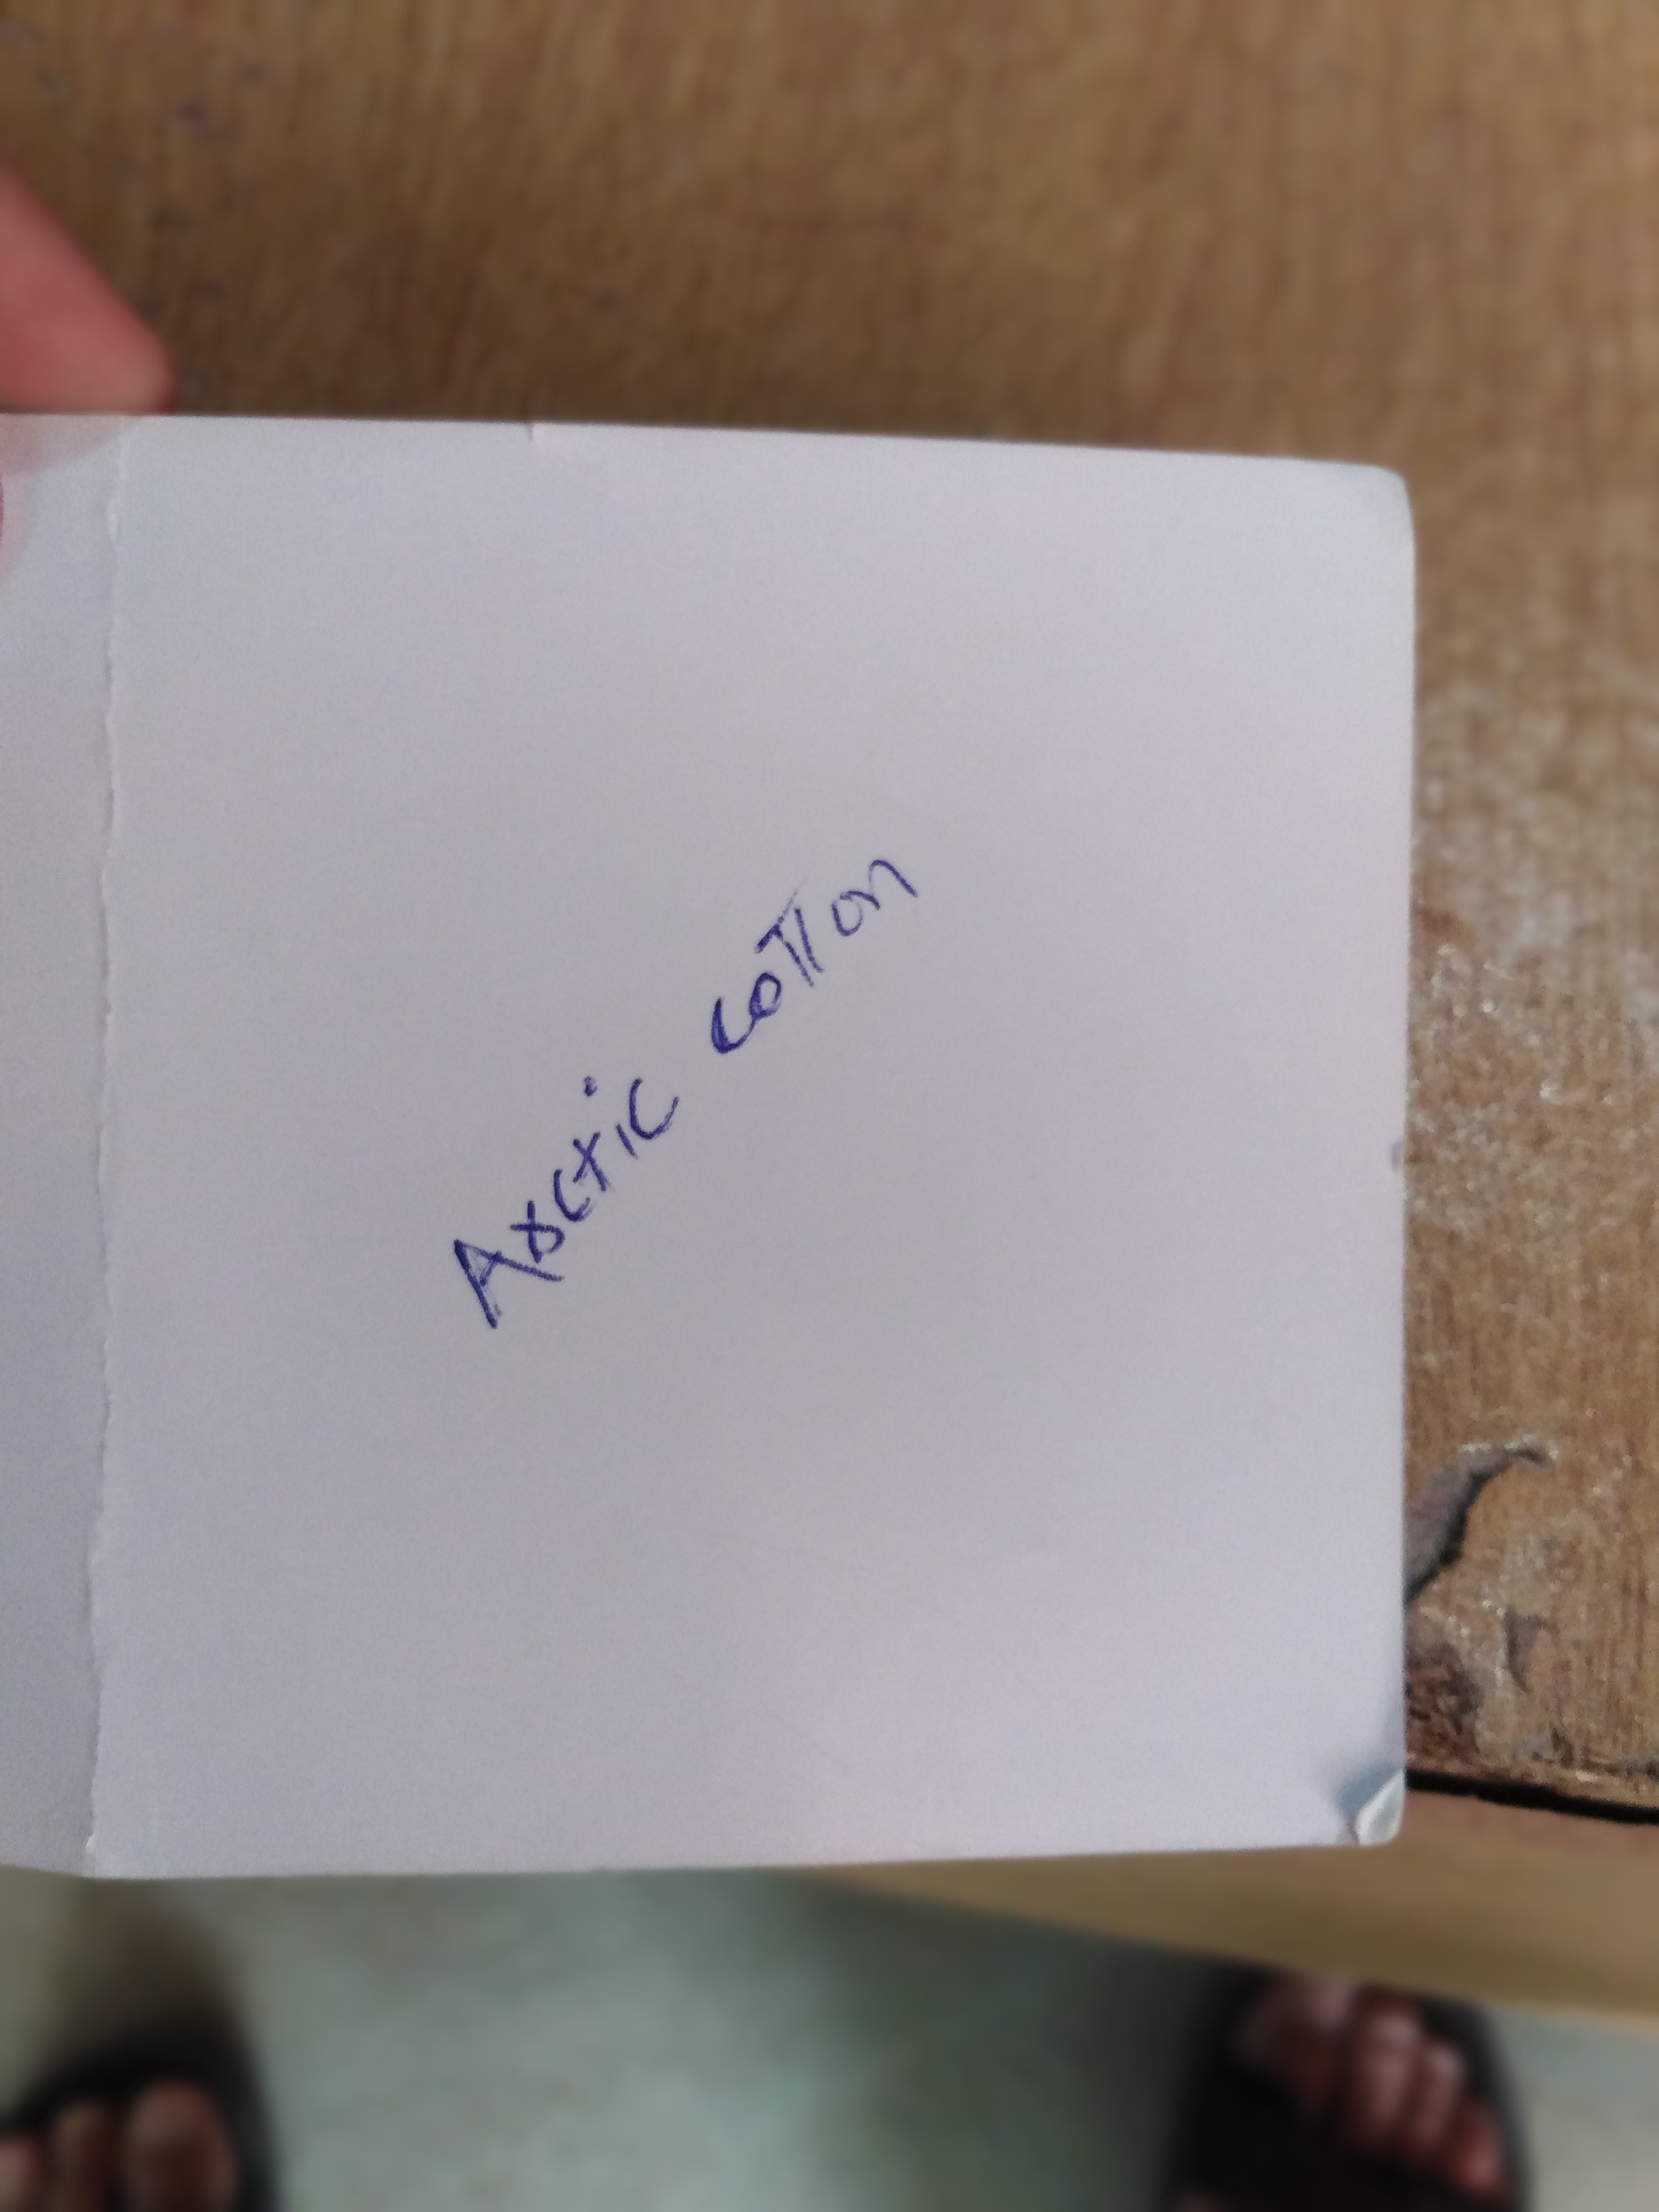 Arctic cotton